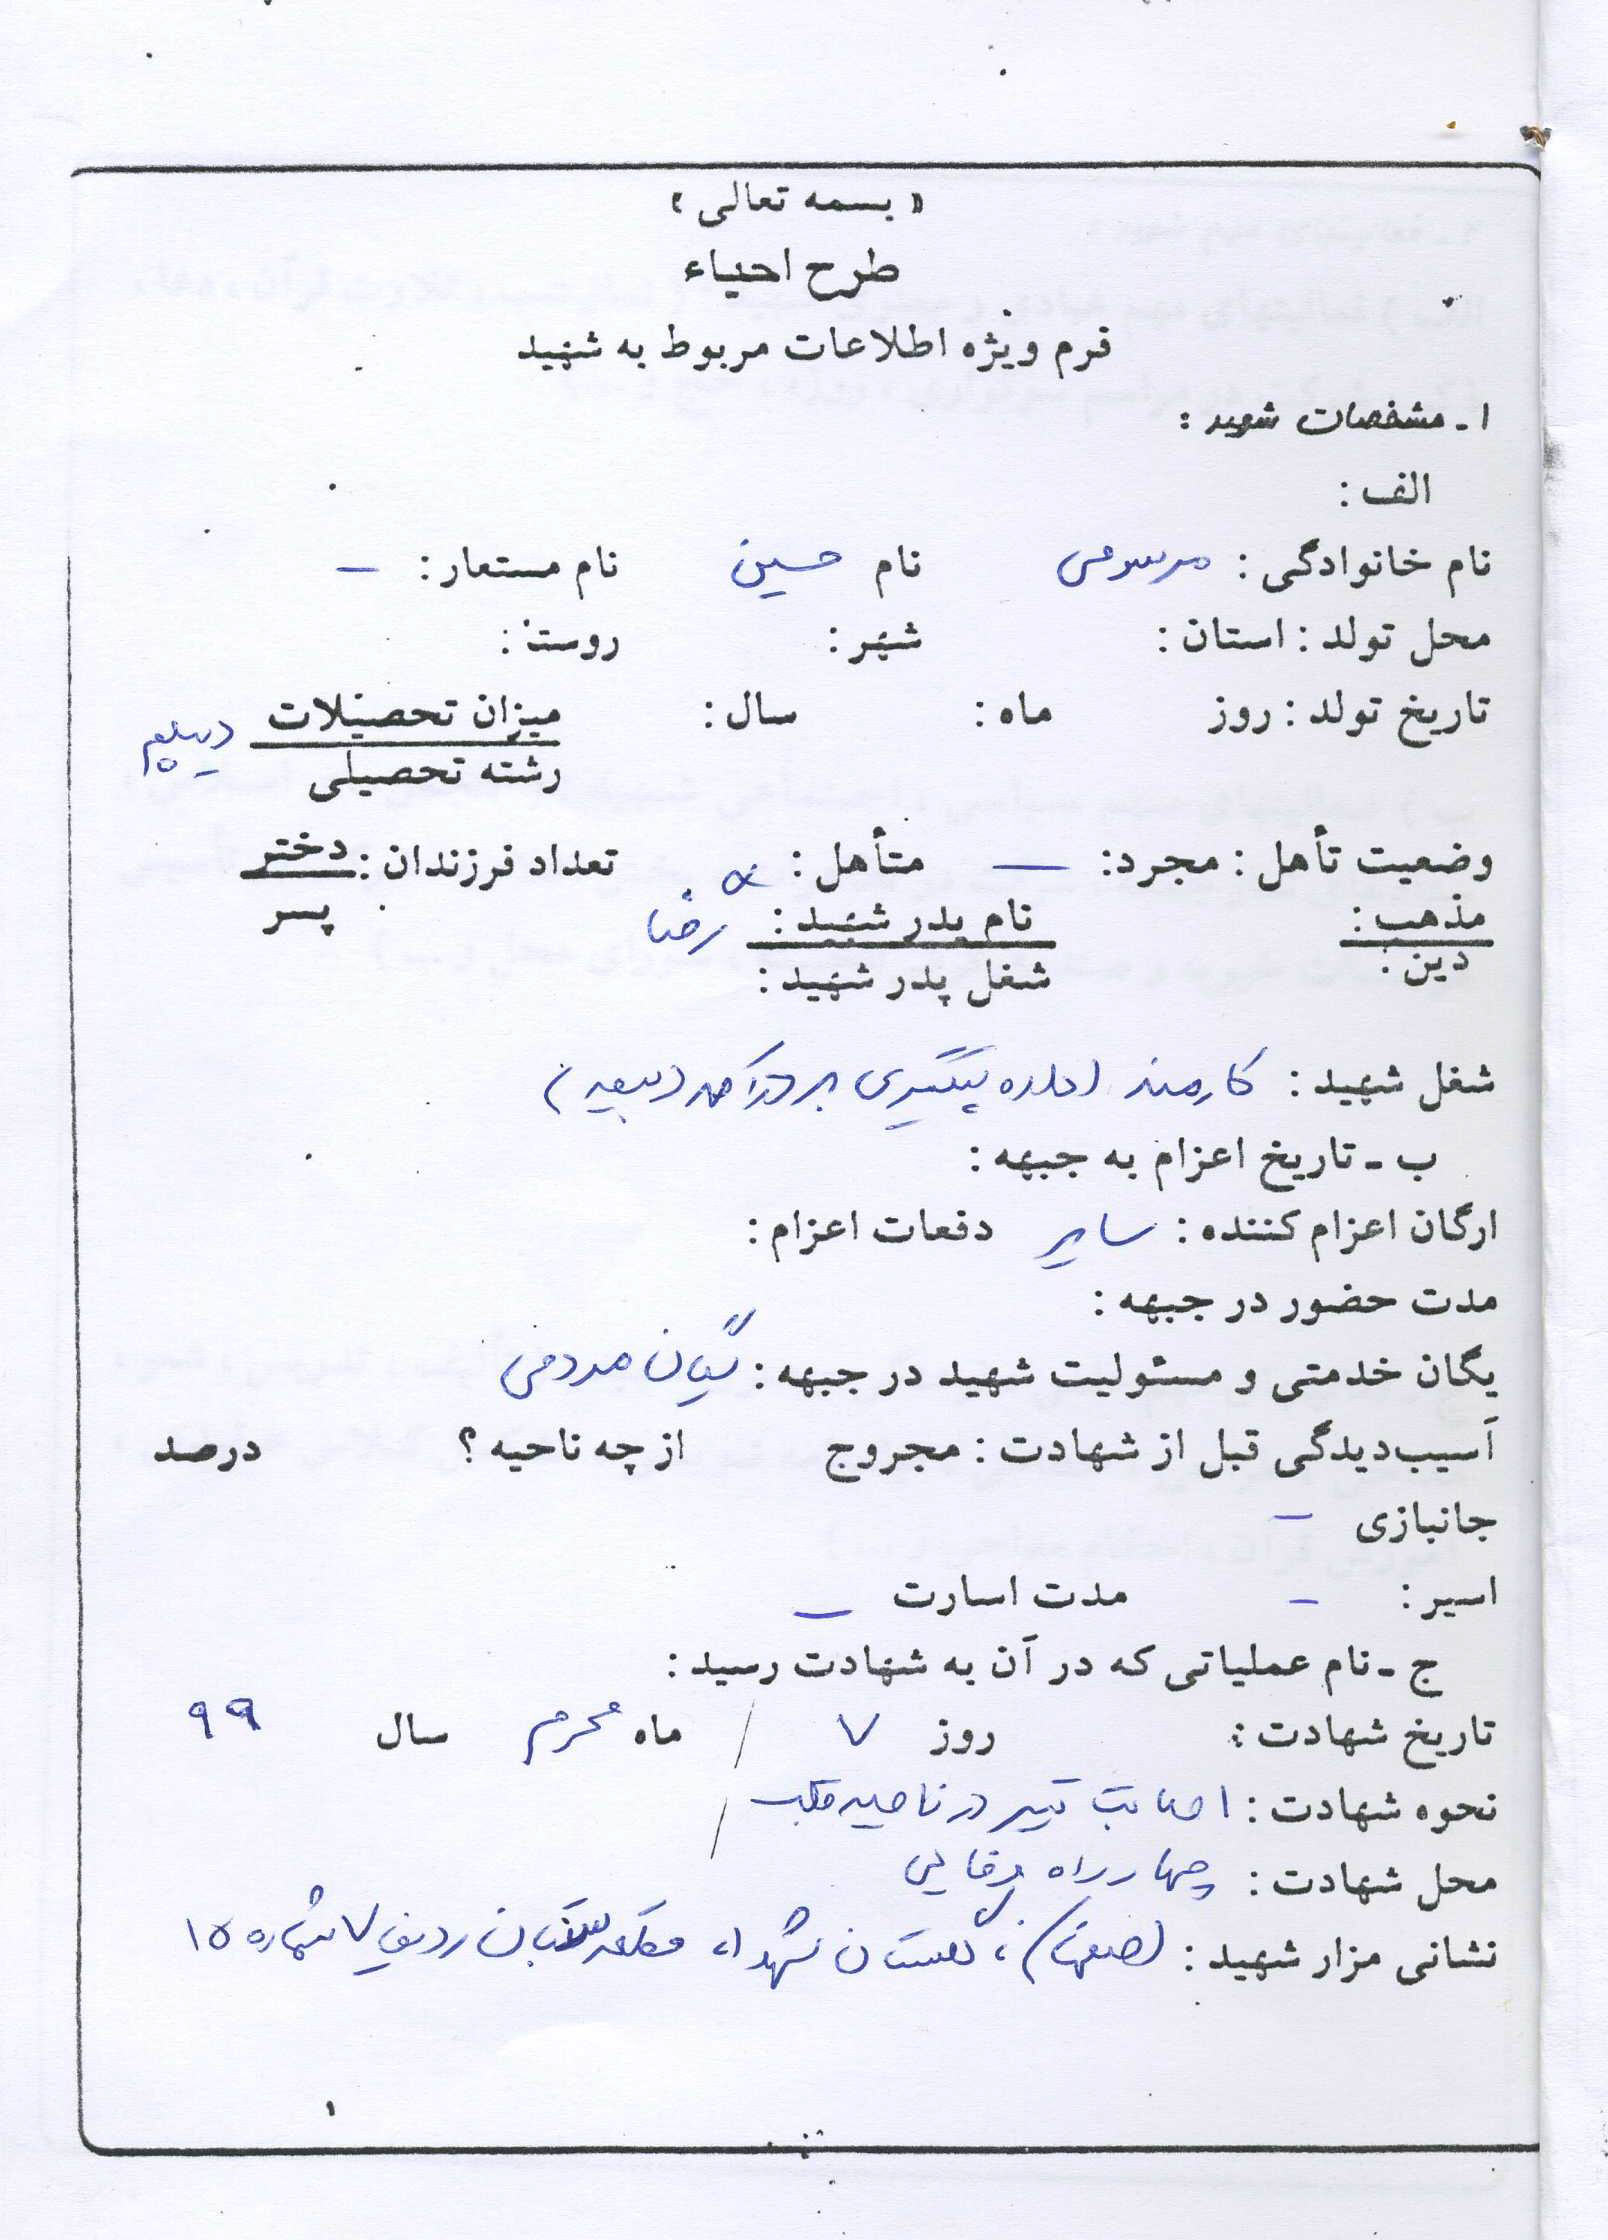 « بسمه تعالی »
طرح احیاء
فرم ویژه اطلاعات مربوط به شهید
۱ ـ مشخصات شهید :
الف :
نام خانوادگی : نام حسین نام مستعار : –
محل تولد : استان : شهر : روستا :
تاریخ تولد : روز ماه : سال : میزان تحصیلات دیپلم
رشته تحصیلی
وضعیت تأهل : مجرد : — متأهل : تعداد فرزندان : دختر
پسر
مذهب : نام پدر شهید : رضا
دین : شغل پدر شهید :
شغل شهید : کارمند اداره پیگیری
ب ـ تاریخ اعزام به جبهه :
ارگان اعزام کننده : سایر دفعات اعزام :
مدت حضور در جبهه :
یگان خدمتی و مسئولیت شهید در جبهه : مردمی
آسیب‌دیدگی قبل از شهادت : مجروح از چه ناحیه ؟ درصد
جانبازی –
اسیر : – مدت اسارت –
ج ـ نام عملیاتی که در آن به شهادت رسید :
تاریخ شهادت : روز ۷ / ماه محرم سال ۹۹
نحوه شهادت : اصابت تیر در ناحیه قلب
محل شهادت : چهار راه وفایی
نشانی مزار شهید : اصفهان، گلستان شهدا، قطعه ردیف ۷ شماره ۱۵
۱